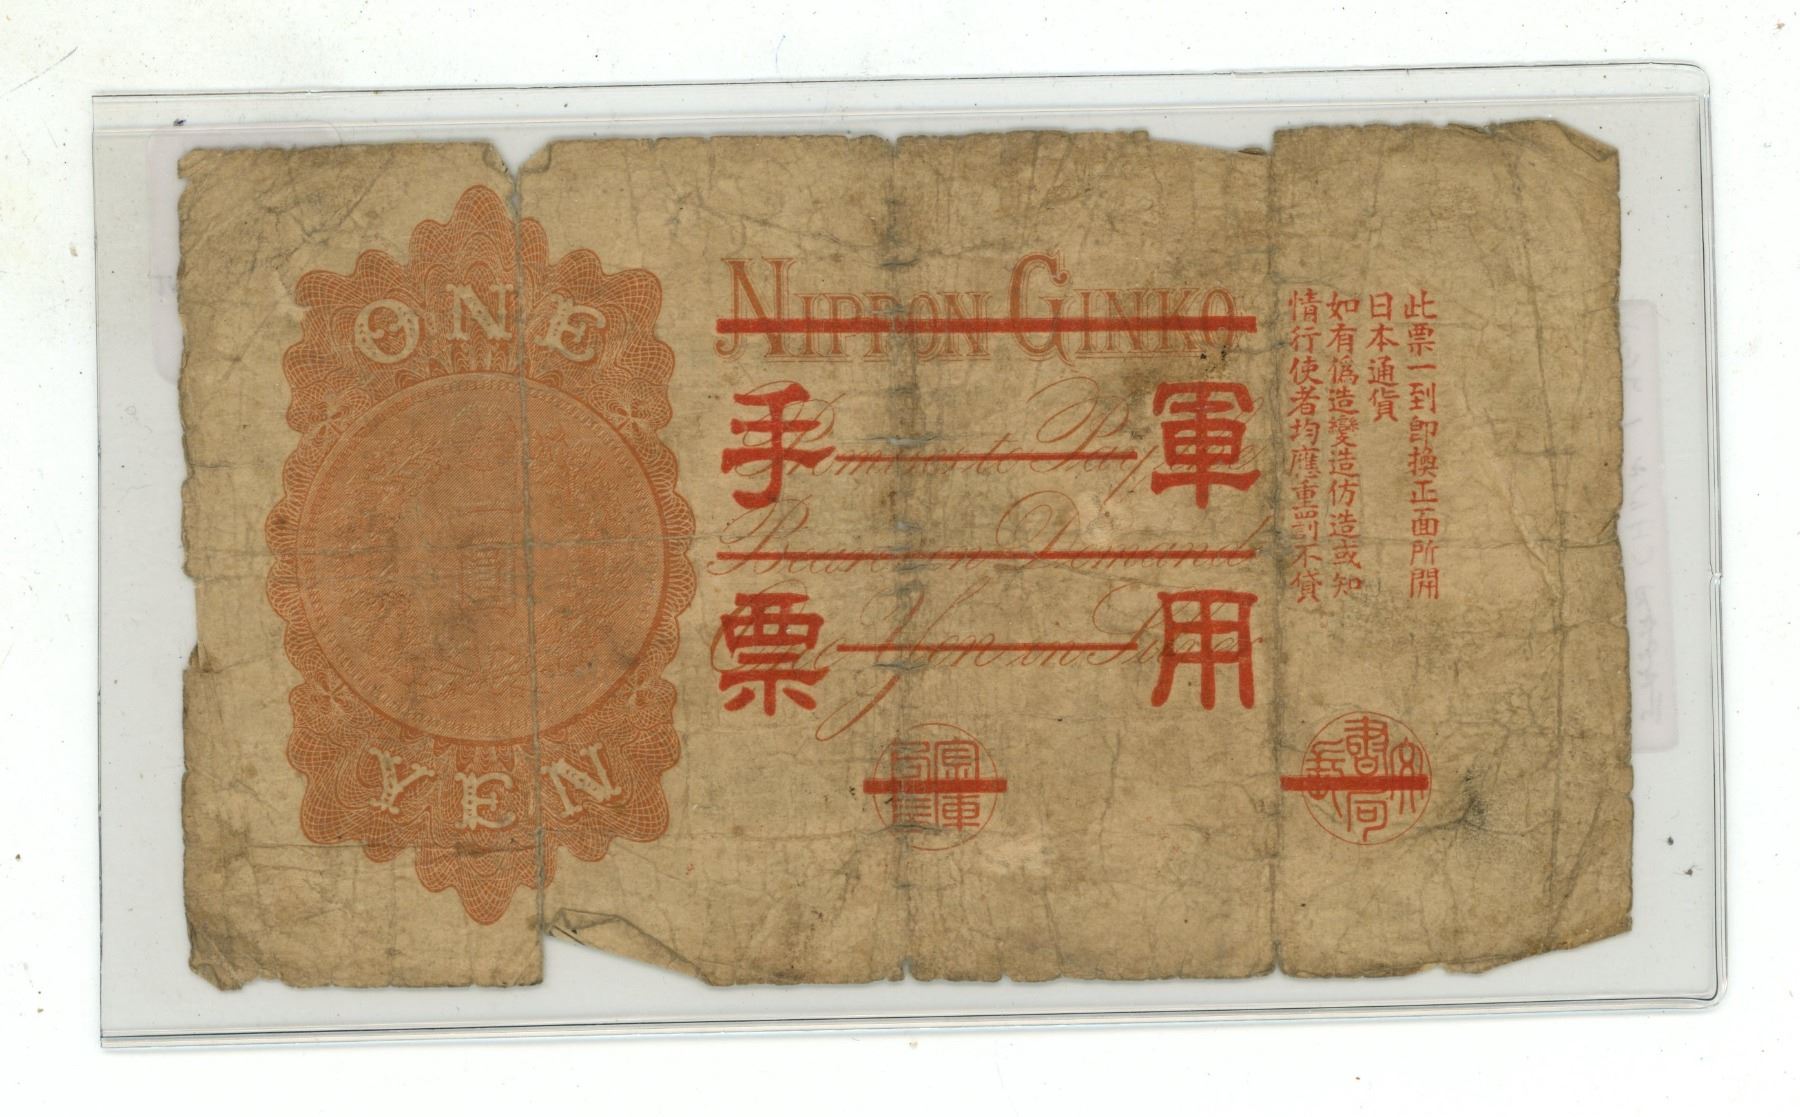 ONE
一圓
YEN
NIPPON GINKO
Promises to Pay the
Bearer on Demand
One Yen in Silver
軍用
手票
此票一到即換正面所開
日本通貨
如有僞造變造仿造或知
情行使者均應重罰不貸
文書局長